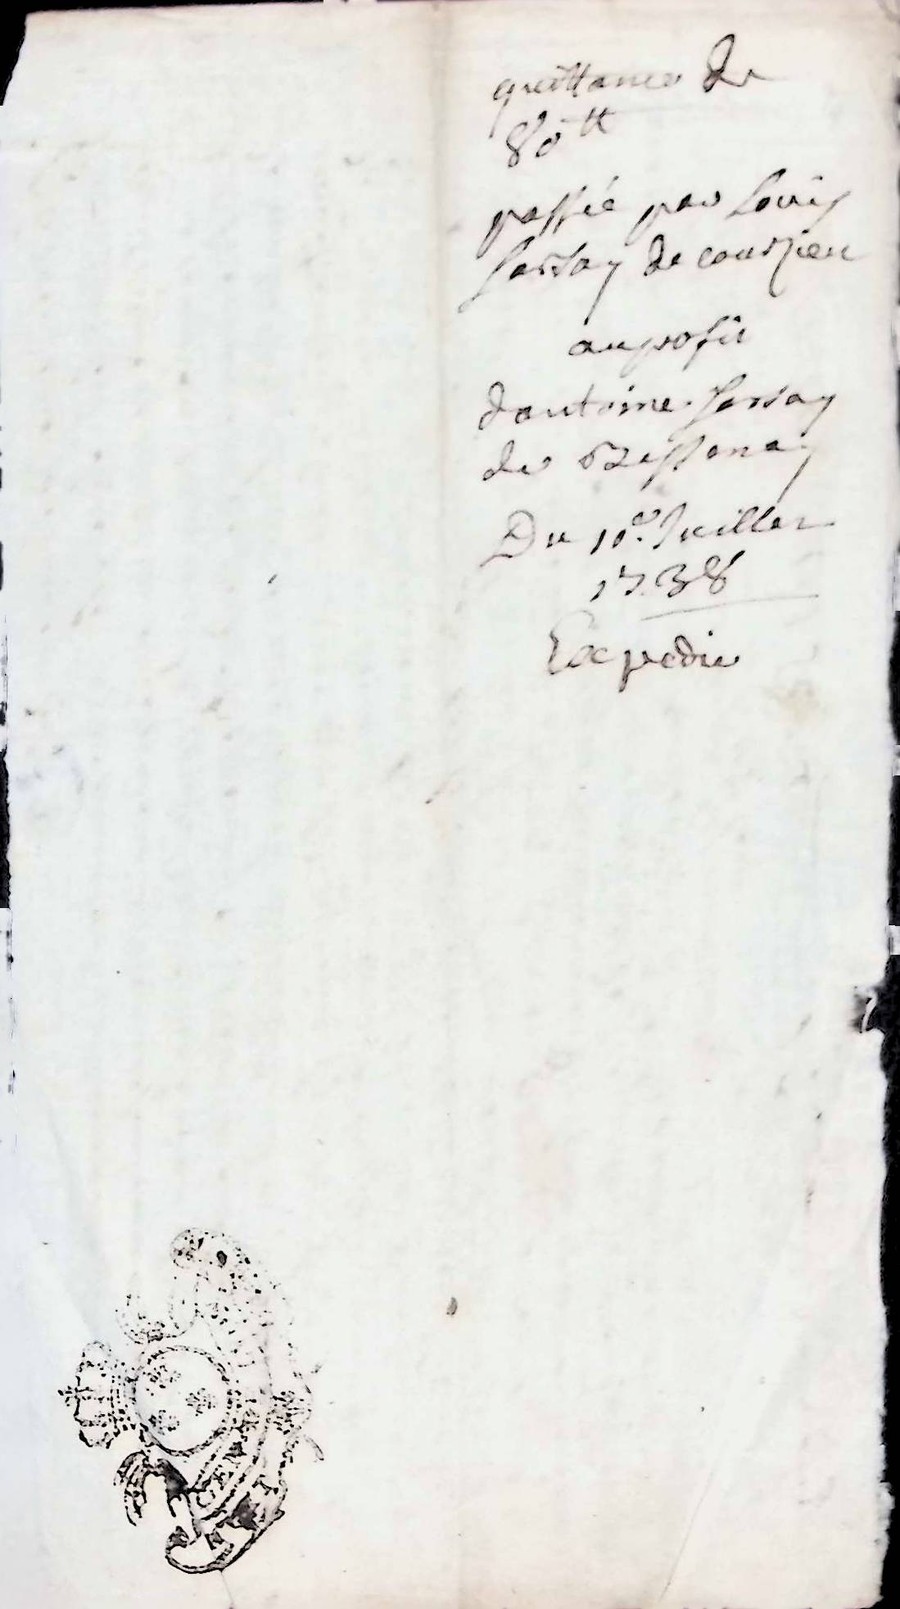 quittance de
80 ₶
passée par Louis
de courzieu
au profit
dantoine
de Bessenay
Du 11e. Juillet
1738
Expedie
GEN